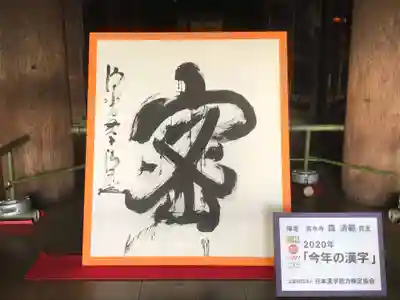 密
揮毫 清水寺 森 清範 貫主
2020年
「今年の漢字」
公益財団法人 日本漢字能力検定協会